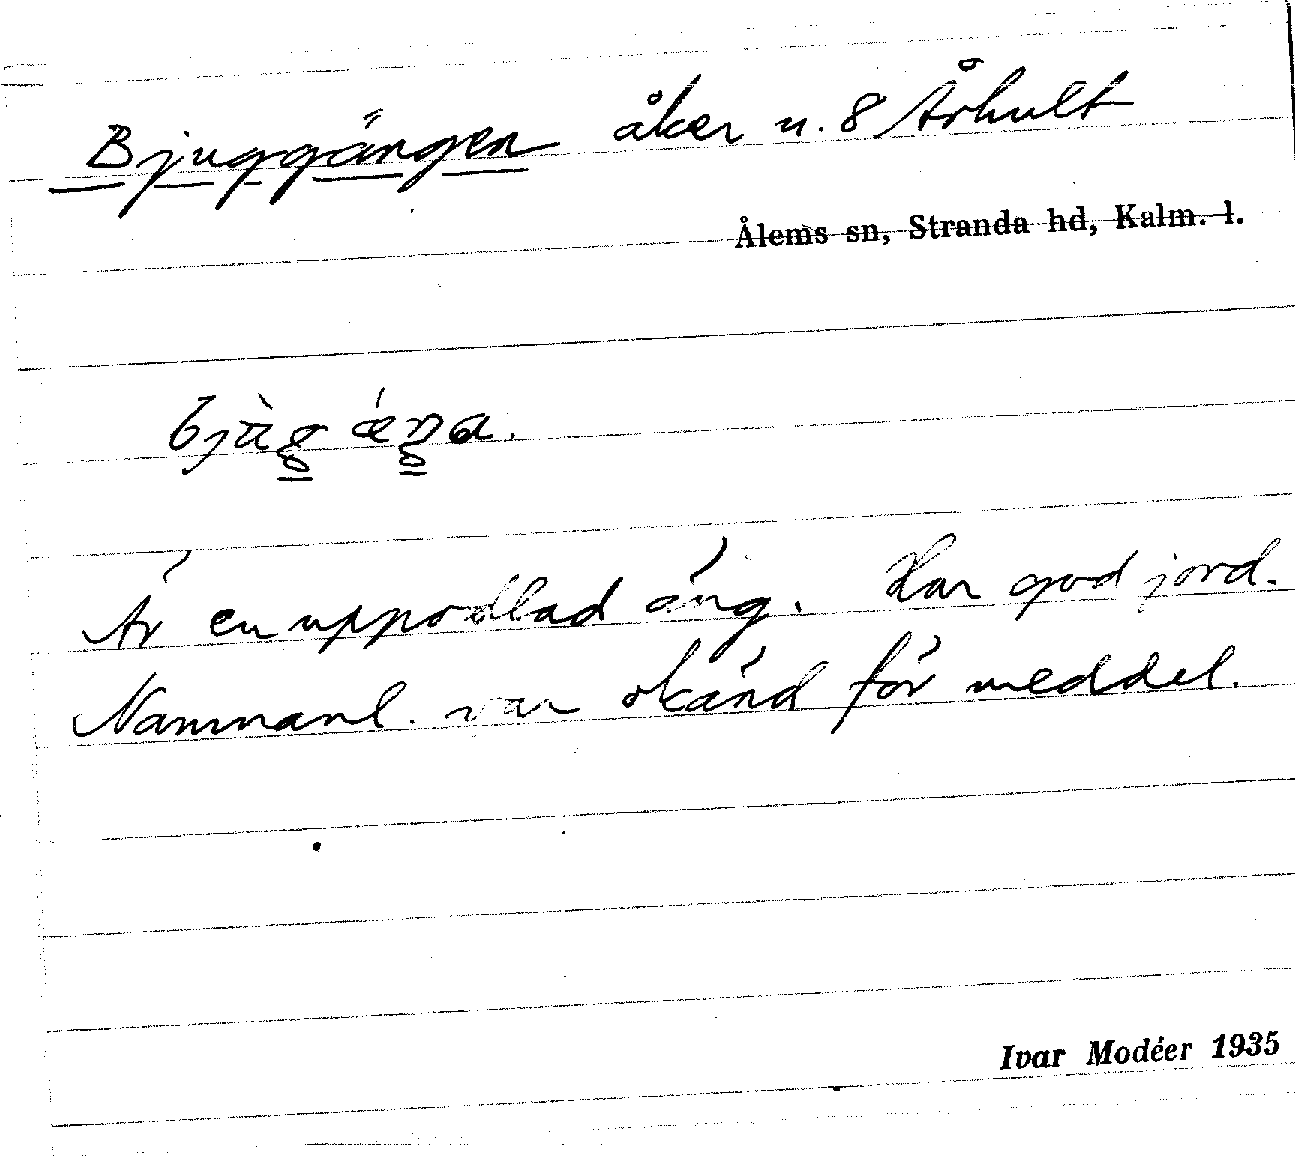 Bjuggängen åker n. 8 Århult
Ålems sn, Stranda hd, Kalm. l.
Är en uppodlad äng. Har god jord.
Namnanl. var okänd för meddel.
Ivar Modéer 1935